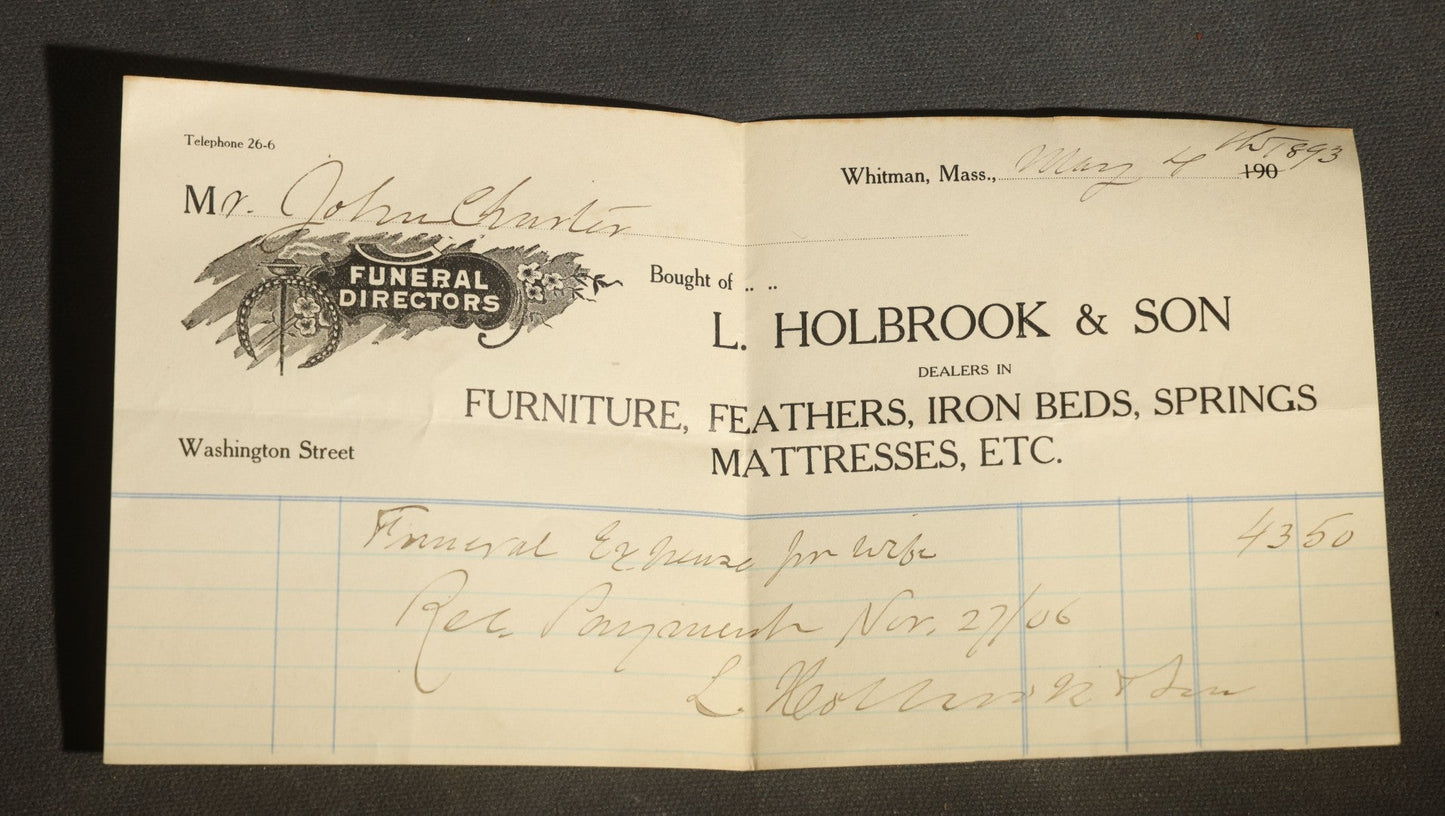 Telephone 26-6
Whitman, Mass., May 4th 1893 190
Mr. John Charter
FUNERAL
DIRECTORS
Bought of .. ..
L. HOLBROOK & SON
DEALERS IN
FURNITURE, FEATHERS, IRON BEDS, SPRINGS
MATTRESSES, ETC.
Washington Street
Funeral Expense for wife 43 50
Rec. Payment Nov. 27/06
L. Holbrook & Son